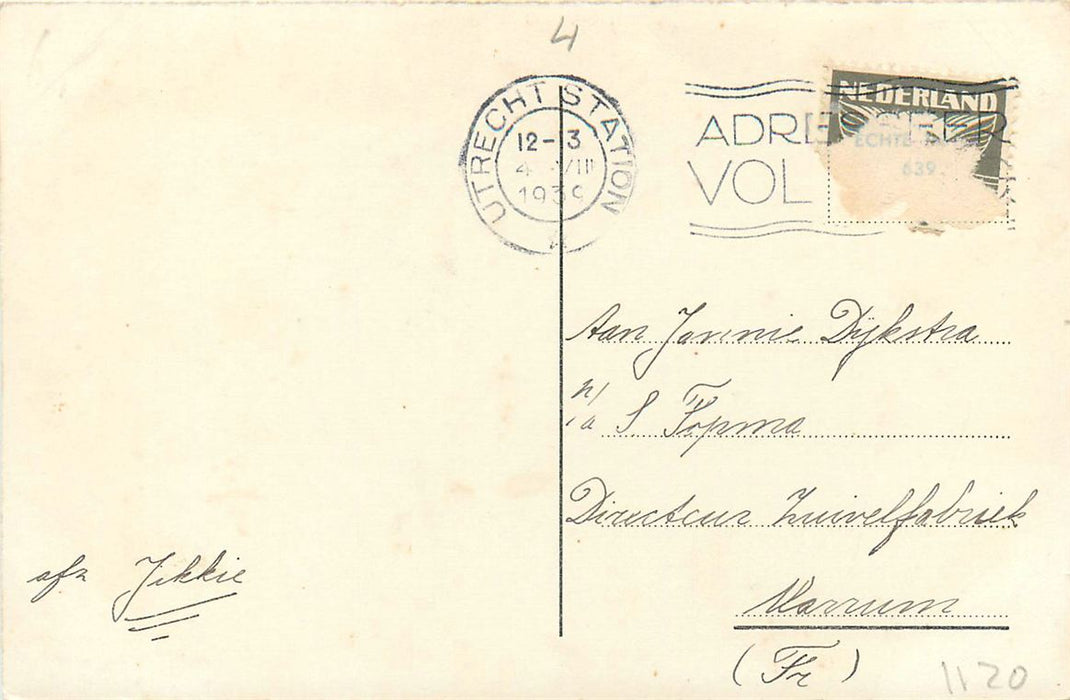 4
UTRECHT STATION
12-3
4 VIII
1939
NEDERLAND
ADRES
VOL
ECHTE
639
Aan Jannie Dijkstra
p/a S Fopma
Directeur Zuivelfabriek
Marrum
(Fr)
afz Jikkie
1120